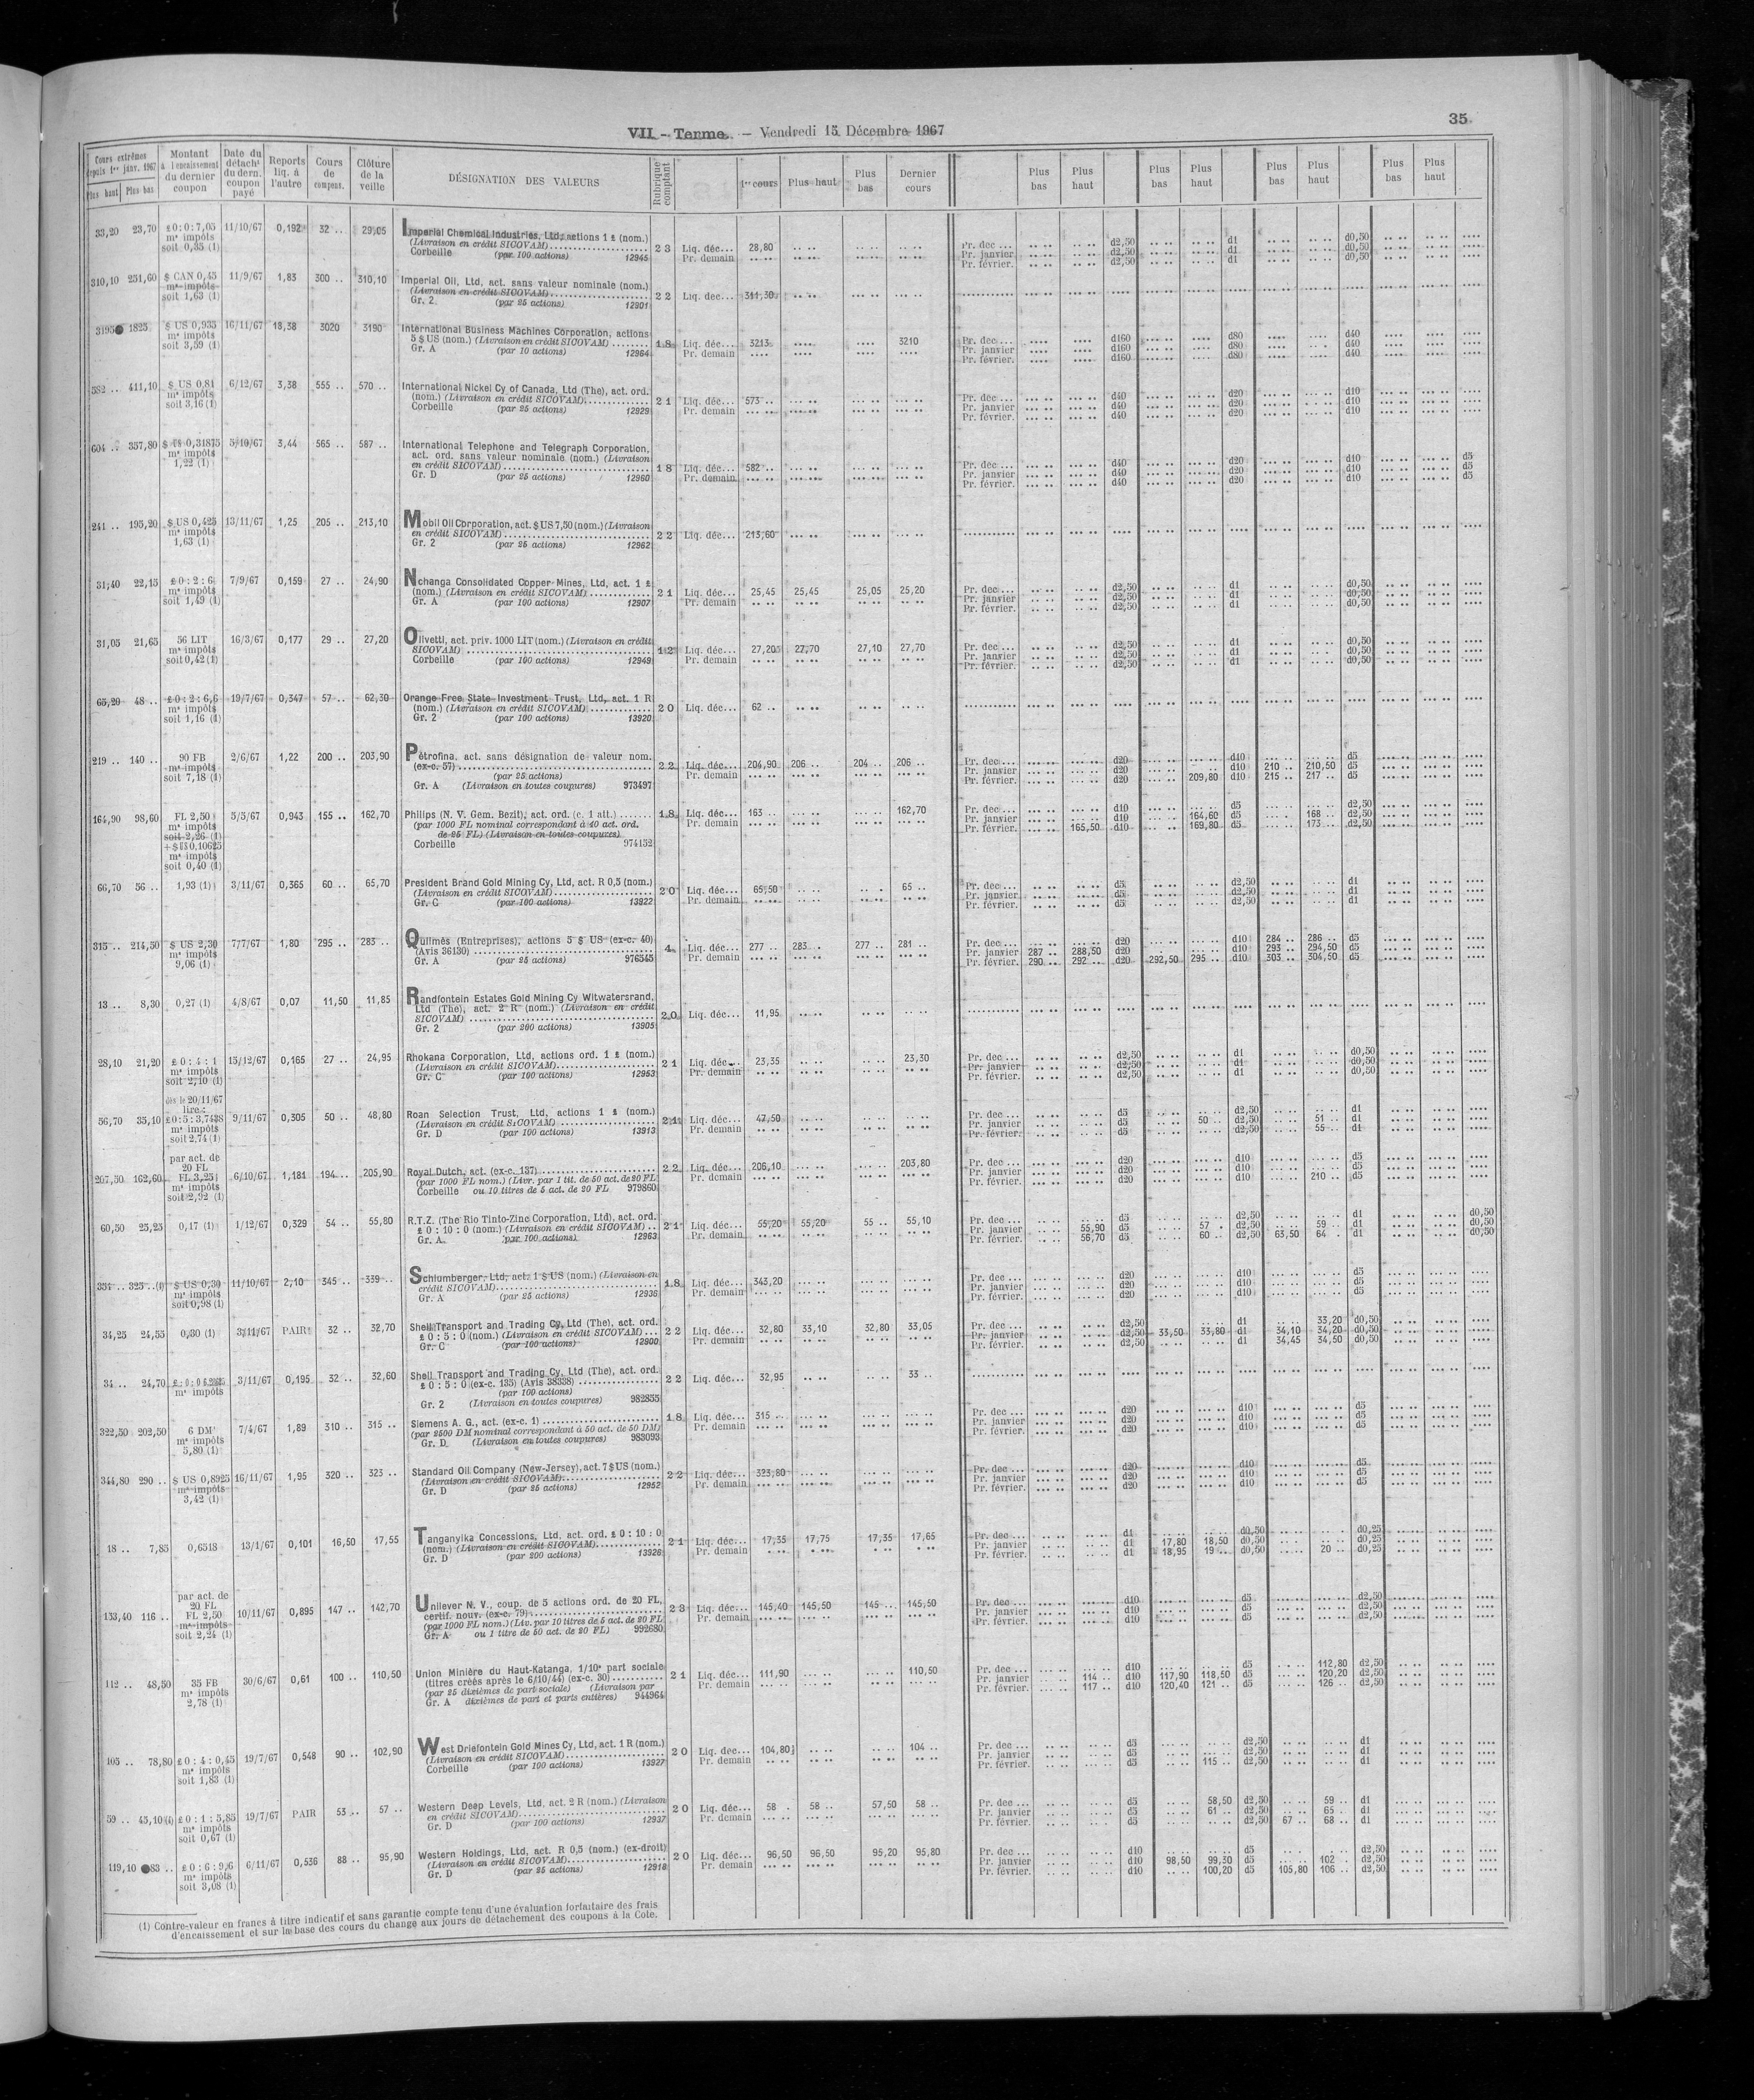 VII. - Terme. — Vendredi 15 Décembre 1967
35
Cours extrêmes depuis 1er janv. 1967 Plus haut Plus bas | Montant à l'encaissement du dernier coupon | Date du détacht du dern. coupon payé | Reports liq. à l'autre | Cours de compens. | Clôture de la veille | DÉSIGNATION DES VALEURS | Rubrique comptant | 1er cours | Plus haut | Plus bas | Dernier cours | Plus bas | Plus haut | Plus bas | Plus haut | Plus bas | Plus haut | Plus bas | Plus haut
33,20 23,70 £0:0:7,05 11/10/67 0,192 32 .. 29,05 Imperial Chemical Industries, Ltd, actions 1 £ (nom.)
ms impôts (Livraison en crédit SICOVAM) 2 3 Liq. déc... 28,80 Pr. dec ... d2,50 d1 d0,50
soit 0,35 (1) Corbeille (par 100 actions) 12945 Pr. demain Pr. janvier d2,50 d1 d0,50
Pr. février. d2,50 d1 d0,50
310,10 251,60 $ CAN 0,45 11/9/67 1,83 300 .. 310,10 Imperial Oil, Ltd, act. sans valeur nominale (nom.)
ms impôts (Livraison en crédit SICOVAM) 2 2 Liq. dec... 311,30
soit 1,63 (1) Gr. 2 (par 25 actions) 12901
3195 1825 $ US 0,935 16/11/67 18,38 3020 3190 International Business Machines Corporation, actions
ms impôts 5 $ US (nom.) (Livraison en crédit SICOVAM) 1 8 Liq. déc... 3213 3210 Pr. dec ... d160 d80 d40
soit 3,59 (1) Gr. A (par 10 actions) 12964 Pr. demain Pr. janvier d160 d80 d40
Pr. février. d160 d80 d40
582 .. 411,10 $ US 0,81 6/12/67 3,38 555 .. 570 .. International Nickel Cy of Canada, Ltd (The), act. ord.
ms impôts (nom.) (Livraison en crédit SICOVAM) 2 1 Liq. déc... 573 .. Pr. dec ... d40 d20 d10
soit 3,16 (1) Corbeille (par 25 actions) 12929 Pr. demain Pr. janvier d40 d20 d10
Pr. février. d40 d20 d10
604 .. 357,80 $ US 0,31875 5/10/67 3,44 565 .. 587 .. International Telephone and Telegraph Corporation,
ms impôts act. ord. sans valeur nominale (nom.) (Livraison
1,22 (1) en crédit SICOVAM) 1 8 Liq. déc... 582 .. Pr. dec ... d40 d20 d10 d5
Gr. D (par 25 actions) 12960 Pr. demain Pr. janvier d40 d20 d10 d5
Pr. février. d40 d20 d10 d5
241 .. 195,20 $ US 0,425 13/11/67 1,25 205 .. 213,10 Mobil Oil Corporation, act. $ US 7,50 (nom.) (Livraison
ms impôts en crédit SICOVAM) 2 2 Liq. déc... 213,60
1,63 (1) Gr. 2 (par 25 actions) 12962
31,40 22,15 £0:2:6 7/9/67 0,159 27 .. 24,90 Nchanga Consolidated Copper Mines, Ltd, act. 1 £
ms impôts (nom.) (Livraison en crédit SICOVAM) 2 1 Liq. déc... 25,45 25,45 25,05 25,20 Pr. dec ... d2,50 d1 d0,50
soit 1,49 (1) Gr. A (par 100 actions) 12907 Pr. demain Pr. janvier d2,50 d1 d0,50
Pr. février. d2,50 d1 d0,50
31,05 21,65 56 LIT 16/3/67 0,177 29 .. 27,20 Olivetti, act. priv. 1000 LIT (nom.) (Livraison en crédit
ms impôts SICOVAM) 1 2 Liq. déc... 27,20 27,70 27,10 27,70 Pr. dec ... d2,50 d1 d0,50
soit 0,42 (1) Corbeille (par 100 actions) 12949 Pr. demain Pr. janvier d2,50 d1 d0,50
Pr. février. d2,50 d1 d0,50
65,20 48 .. £0:2:6,6 19/7/67 0,347 57 .. 62,30 Orange Free State Investment Trust, Ltd, act. 1 R
ms impôts (nom.) (Livraison en crédit SICOVAM) 2 0 Liq. déc... 62 ..
soit 1,16 (1) Gr. 2 (par 100 actions) 13920
219 .. 140 .. 90 FB 2/6/67 1,22 200 .. 203,90 Pétrofina, act. sans désignation de valeur nom.
ms impôts (ex-c. 57) 2 2 Liq. déc... 204,90 206 .. 204 .. 206 .. Pr. dec ... d20 d10 d5
soit 7,18 (1) (par 25 actions) Pr. demain Pr. janvier d20 d10 210 .. 210,50 d5
Gr. A (Livraison en toutes coupures) 973497 Pr. février. d20 209,80 d10 215 .. 217 .. d5
164,90 98,60 FL 2,50 5/5/67 0,943 155 .. 162,70 Philips (N. V. Gem. Bezit), act. ord. (c. 1 att.) 1 8 Liq. déc... 163 .. 162,70 Pr. dec ... d10 d5 d2,50
ms impôts (par 1000 FL nominal correspondant à 40 act. ord. Pr. demain Pr. janvier d10 164,60 d5 168 .. d2,50
soit 2,26 (1) de 25 FL) (Livraison en toutes coupures) Pr. février. 165,50 d10 169,80 d5 173 .. d2,50
+$ US 0,10625 Corbeille 974152
ms impôts
soit 0,40 (1)
66,70 56 .. 1,93 (1) 3/11/67 0,365 60 .. 65,70 President Brand Gold Mining Cy, Ltd, act. R 0,5 (nom.)
(Livraison en crédit SICOVAM) 2 0 Liq. déc... 65,50 65 .. Pr. dec ... d5 d2,50 d1
Gr. C (par 100 actions) 13922 Pr. demain Pr. janvier d5 d2,50 d1
Pr. février. d5 d2,50 d1
315 .. 214,50 $ US 2,30 7/7/67 1,80 295 .. 283 .. Quilmès (Entreprises), actions 5 $ US (ex-c. 40)
ms impôts (Avis 36130) 4 Liq. déc... 277 .. 283 .. 277 .. 281 .. Pr. dec ... d20 d10 284 .. 286 .. d5
9,06 (1) Gr. A (par 25 actions) 976545 Pr. demain Pr. janvier 287 .. 288,50 d20 d10 293 .. 294,50 d5
Pr. février. 290 .. 292 .. d20 292,50 295 .. d10 303 .. 304,50 d5
13 .. 8,30 0,27 (1) 4/8/67 0,07 11,50 11,85 Randfontein Estates Gold Mining Cy Witwatersrand,
Ltd (The), act. 2 R (nom.) (Livraison en crédit
SICOVAM) 2 0 Liq. déc... 11,95
Gr. 2 (par 200 actions) 13905
28,10 21,20 £0:4:1 15/12/67 0,165 27 .. 24,95 Rhokana Corporation, Ltd, actions ord. 1 £ (nom.)
ms impôts (Livraison en crédit SICOVAM) 2 1 Liq. déc... 23,35 23,30 Pr. dec ... d2,50 d1 d0,50
soit 2,10 (1) Gr. C (par 100 actions) 12953 Pr. demain Pr. janvier d2,50 d1 d0,50
Pr. février. d2,50 d1 d0,50
dès le 20/11/67
lire :
56,70 35,10 £0:5:3,7438 9/11/67 0,305 50 .. 48,80 Roan Selection Trust, Ltd, actions 1 £ (nom.)
ms impôts (Livraison en crédit SICOVAM) 2 1 Liq. déc... 47,50 Pr. dec ... d5 d2,50 d1
soit 2,74 (1) Gr. D (par 100 actions) 13913 Pr. demain Pr. janvier d5 50 .. d2,50 51 .. d1
Pr. février. d5 d2,50 55 .. d1
par act. de
20 FL
207,50 162,60 FL 3,25 6/10/67 1,184 194 .. 205,90 Royal Dutch, act. (ex-c. 137) 2 2 Liq. déc... 206,10 203,80 Pr. dec ... d20 d10 d5
ms impôts (par 1000 FL nom.) (Livr. par 1 tit. de 50 act. de 20 FL Pr. demain Pr. janvier d20 d10 d5
soit 2,92 (1) Corbeille ou 10 titres de 5 act. de 20 FL 979860 Pr. février. d20 d10 210 .. d5
60,50 25,25 0,17 (1) 1/12/67 0,329 54 .. 55,80 R.T.Z. (The Rio Tinto-Zinc Corporation, Ltd), act. ord.
£ 0 : 10 : 0 (nom.) (Livraison en crédit SICOVAM) 2 1 Liq. déc... 55,20 55,20 55 .. 55,10 Pr. dec ... d5 d2,50 d1 d0,50
Gr. A (par 100 actions) 12963 Pr. demain Pr. janvier 55,90 d5 57 .. d2,50 59 .. d1 d0,50
Pr. février. 56,70 d5 60 .. d2,50 63,50 64 .. d1 d0,50
354 .. 325 .. $ US 0,30 11/10/67 2,10 345 .. 339 .. Schlumberger, Ltd, act. 1 $ US (nom.) (Livraison en
ms impôts crédit SICOVAM) 1 8 Liq. déc... 343,20 Pr. dec ... d20 d10 d5
soit 0,98 (1) Gr. A (par 25 actions) 12936 Pr. demain Pr. janvier d20 d10 d5
Pr. février. d20 d10 d5
34,25 24,55 0,30 (1) 3/11/67 PAIR 32 .. 32,70 Shell Transport and Trading Cy, Ltd (The), act. ord.
£ 0 : 5 : 0 (nom.) (Livraison en crédit SICOVAM) 2 2 Liq. déc... 32,80 33,10 32,80 33,05 Pr. dec ... d2,50 d1 33,20 d0,50
Gr. C (par 100 actions) 12900 Pr. demain Pr. janvier d2,50 33,50 33,80 d1 34,10 34,20 d0,50
Pr. février. d2,50 d1 34,45 34,50 d0,50
34 .. 24,70 3/11/67 0,195 32 .. 32,60 Shell Transport and Trading Cy, Ltd (The), act. ord.
ms impôts £ 0 : 5 : 0 (ex-c. 135) (Avis 38338) 2 2 Liq. déc... 32,95 33 ..
(par 100 actions)
Gr. 2 (Livraison en toutes coupures) 982855
322,50 202,50 6 DM 7/4/67 1,89 310 .. 315 .. Siemens A. G., act. (ex-c. 1) 1 8 Liq. déc... 315 .. Pr. dec ... d20 d10 d5
ms impôts (par 2500 DM nominal correspondant à 50 act. de 50 DM) Pr. demain Pr. janvier d20 d10 d5
5,80 (1) Gr. D (Livraison en toutes coupures) 983093 Pr. février. d20 d10 d5
344,80 290 .. $ US 0,8925 16/11/67 1,95 320 .. 323 .. Standard Oil Company (New-Jersey), act. 7 $ US (nom.)
ms impôts (Livraison en crédit SICOVAM) 2 2 Liq. déc... 323,80 Pr. dec ... d20 d10 d5
3,42 (1) Gr. D (par 25 actions) 12952 Pr. demain Pr. janvier d20 d10 d5
Pr. février. d20 d10 d5
18 .. 7,85 0,6518 13/1/67 0,101 16,50 17,55 Tanganyika Concessions, Ltd, act. ord. £ 0 : 10 : 0
(nom.) (Livraison en crédit SICOVAM) 2 1 Liq. déc... 17,35 17,75 17,35 17,65 Pr. dec ... d1 d0,50 d0,25
Gr. D (par 200 actions) 13926 Pr. demain Pr. janvier d1 17,80 18,50 d0,50 d0,25
Pr. février. d1 18,95 19 .. d0,50 20 .. d0,25
par act. de
20 FL
153,40 116 .. FL 2,50 10/11/67 0,895 147 .. 142,70 Unilever N. V., coup. de 5 actions ord. de 20 FL,
ms impôts certif. nouv. (ex-c. 79) 2 3 Liq. déc... 145,40 145,50 145 .. 145,50 Pr. dec ... d10 d5 d2,50
soit 2,24 (1) (par 1000 FL nom.) (Liv. par 10 titres de 5 act. de 20 FL Pr. demain Pr. janvier d10 d5 d2,50
Gr. A ou 1 titre de 50 act. de 20 FL) 992680 Pr. février. d10 d5 d2,50
112 .. 48,50 35 FB 30/6/67 0,61 100 .. 110,50 Union Minière du Haut-Katanga, 1/10e part sociale
ms impôts (titres créés après le 6/10/44) (ex-c. 30) 2 1 Liq. déc... 111,90 110,50 Pr. dec ... d10 d5 112,80 d2,50
2,78 (1) (par 25 dixièmes de part sociale) (Livraison par Pr. demain Pr. janvier 114 .. d10 117,90 118,50 d5 120,20 d2,50
Gr. A dixièmes de part et parts entières) 944964 Pr. février. 117 .. d10 120,40 121 .. d5 126 .. d2,50
105 .. 78,80 £0:4:0,45 19/7/67 0,548 90 .. 102,90 West Driefontein Gold Mines Cy, Ltd, act. 1 R (nom.)
ms impôts (Livraison en crédit SICOVAM) 2 0 Liq. dec... 104,80 104 .. Pr. dec ... d5 d2,50 d1
soit 1,83 (1) Corbeille (par 100 actions) 13927 Pr. demain Pr. janvier d5 d2,50 d1
Pr. février. d5 115 .. d2,50 d1
59 .. 45,10 £0:1:5,85 19/7/67 PAIR 53 .. 57 .. Western Deep Levels, Ltd, act. 2 R (nom.) (Livraison
ms impôts en crédit SICOVAM) 2 0 Liq. déc... 58 .. 58 .. 57,50 58 .. Pr. dec ... d5 58,50 d2,50 59 .. d1
soit 0,67 (1) Gr. D (par 100 actions) 12937 Pr. demain Pr. janvier d5 61 .. d2,50 65 .. d1
Pr. février. d5 d2,50 67 .. 68 .. d1
119,10 83 .. £0:6:9,6 6/11/67 0,536 88 .. 95,90 Western Holdings, Ltd, act. R 0,5 (nom.) (ex-droit)
ms impôts (Livraison en crédit SICOVAM) 2 0 Liq. déc... 96,50 96,50 95,20 95,80 Pr. dec ... d10 d5 d2,50
soit 3,08 (1) Gr. D (par 25 actions) 12918 Pr. demain Pr. janvier d10 98,50 99,30 d5 102 .. d2,50
Pr. février. d10 100,20 d5 105,80 106 .. d2,50
(1) Contre-valeur en francs à titre indicatif et sans garantie compte tenu d'une évaluation forfaitaire des frais
d'encaissement et sur la base des cours du change aux jours de détachement des coupons à la Cote.